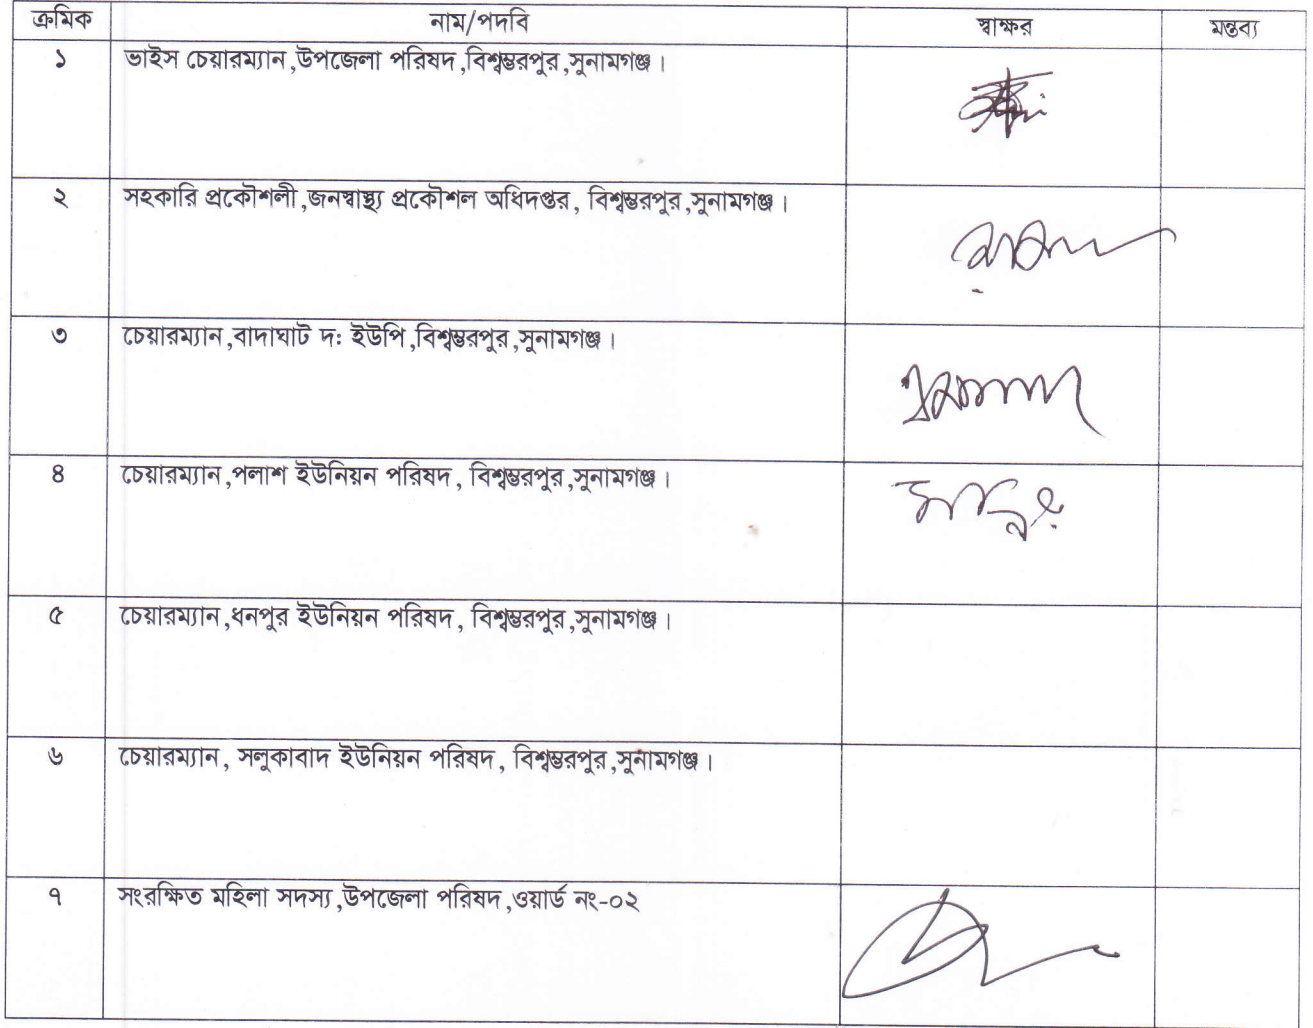 ক্রমিক নাম/পদবি স্বাক্ষর মন্তব্য
১ ভাইস চেয়ারম্যান,উপজেলা পরিষদ,বিশ্বম্ভরপুর,সুনামগঞ্জ।
২ সহকারি প্রকৌশলী,জনস্বাস্থ্য প্রকৌশল অধিদপ্তর, বিশ্বম্ভরপুর,সুনামগঞ্জ।
৩ চেয়ারম্যান,বাদাঘাট দঃ ইউপি,বিশ্বম্ভরপুর,সুনামগঞ্জ।
৪ চেয়ারম্যান,পলাশ ইউনিয়ন পরিষদ, বিশ্বম্ভরপুর,সুনামগঞ্জ।
৫ চেয়ারম্যান,ধনপুর ইউনিয়ন পরিষদ, বিশ্বম্ভরপুর,সুনামগঞ্জ।
৬ চেয়ারম্যান, সলুকাবাদ ইউনিয়ন পরিষদ, বিশ্বম্ভরপুর,সুনামগঞ্জ।
৭ সংরক্ষিত মহিলা সদস্য,উপজেলা পরিষদ,ওয়ার্ড নং-০২